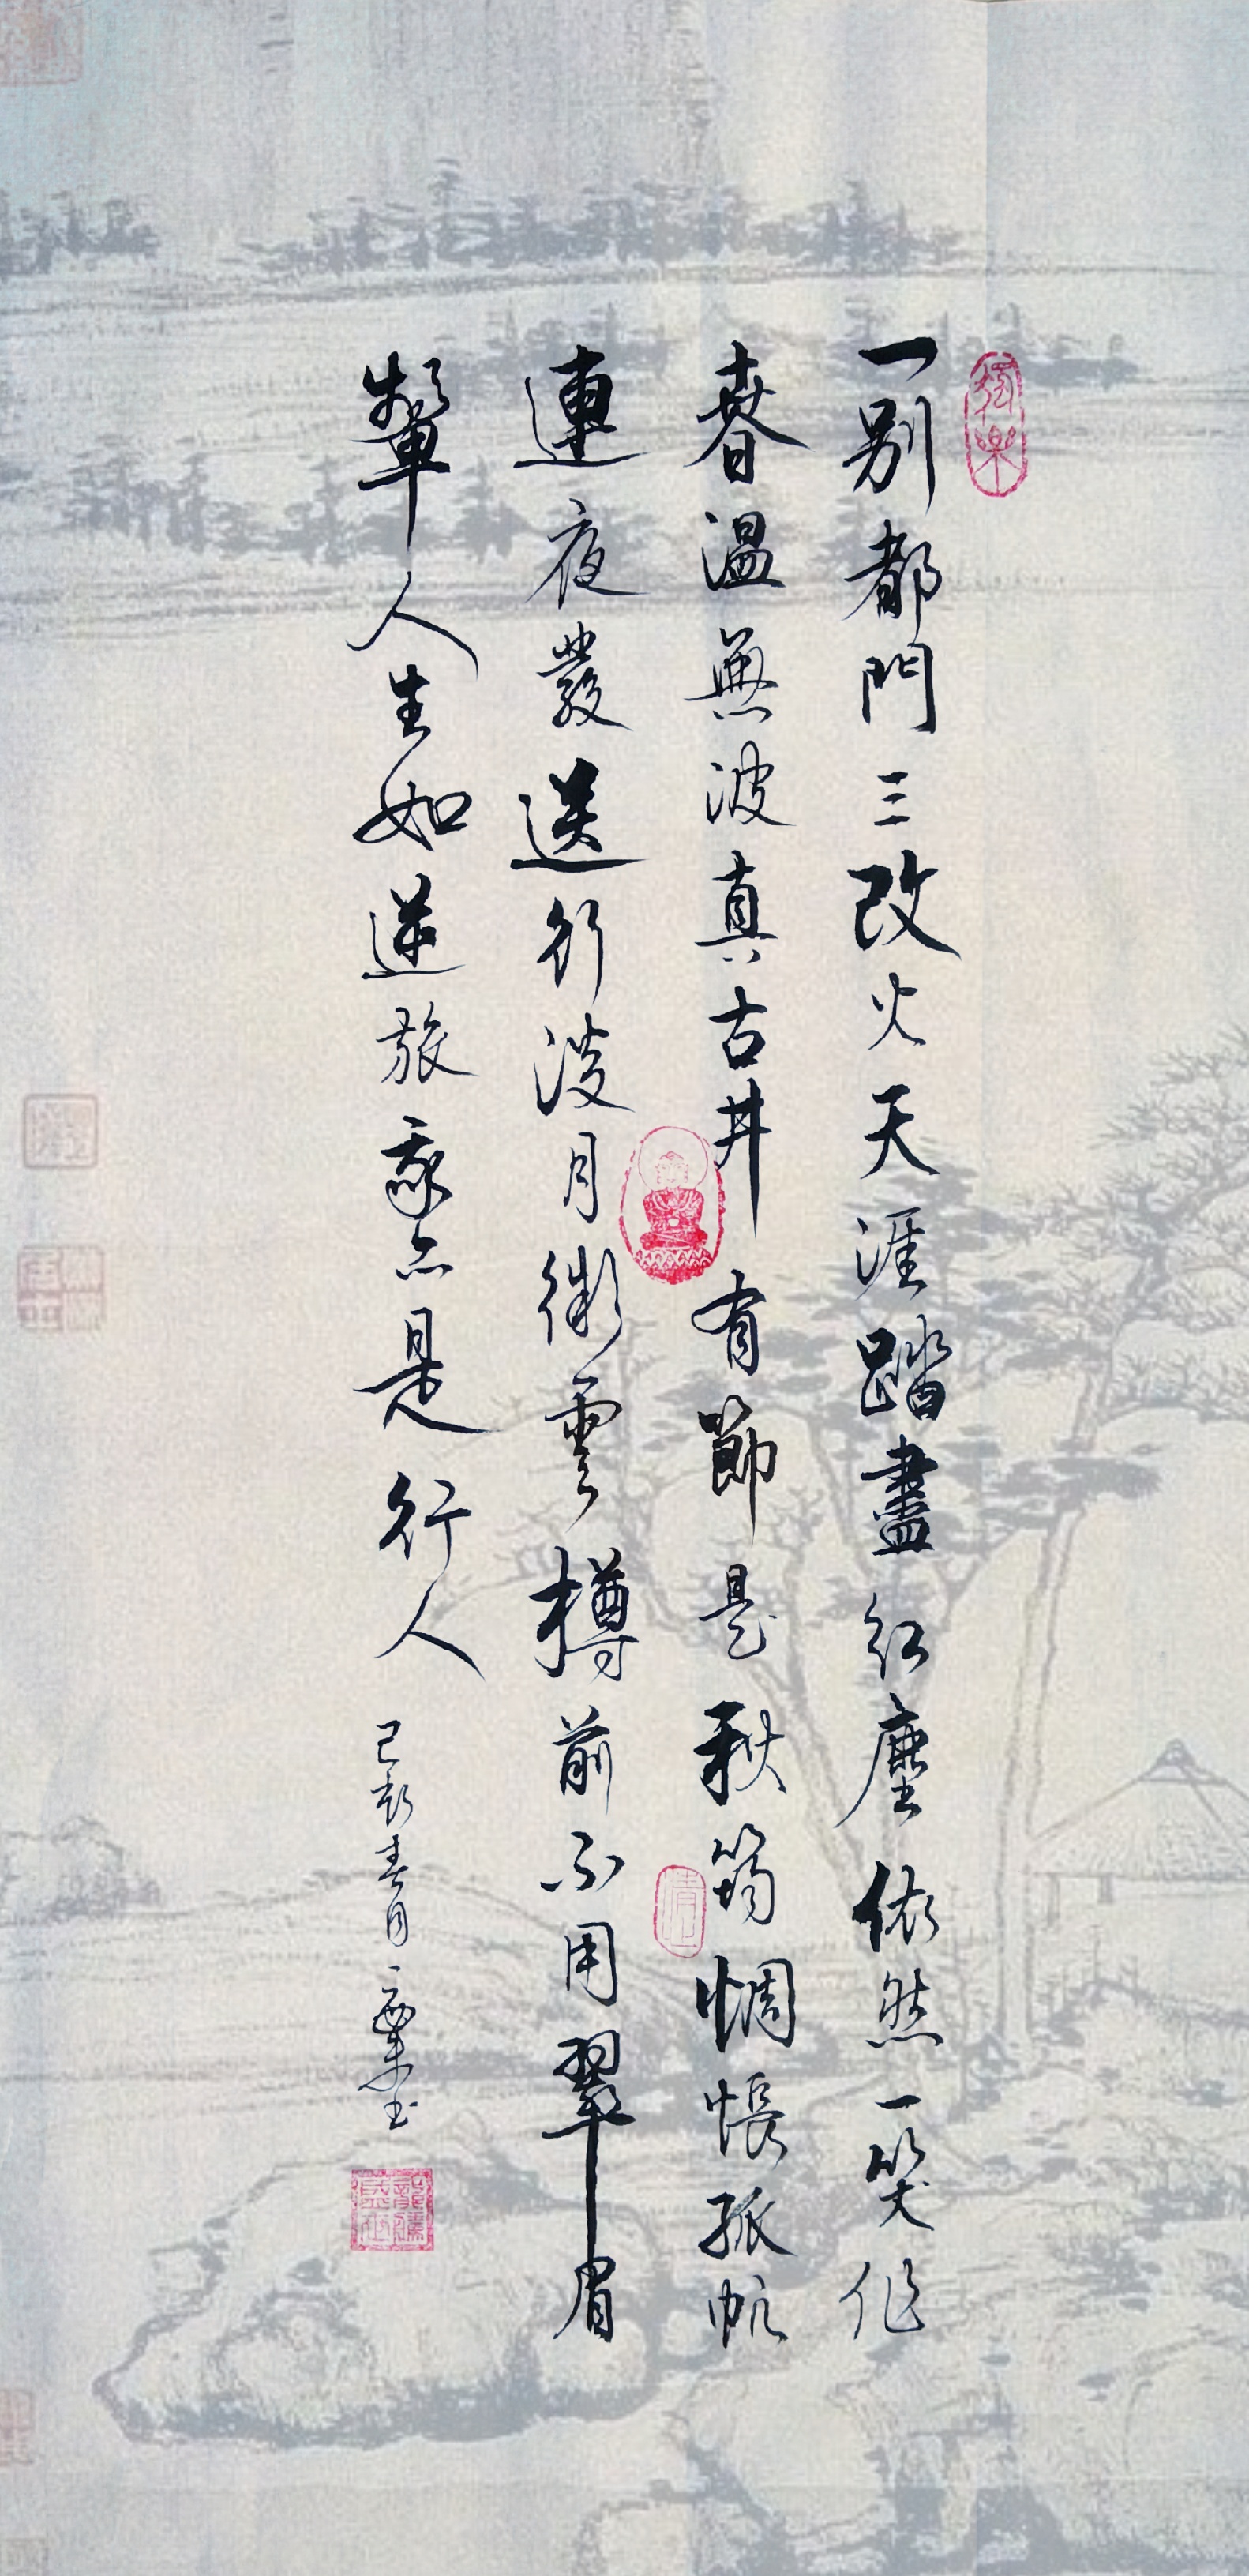 獨樂
一別都門三改火天涯踏盡紅塵依然一笑作
春溫無波真古井有節是秋筠惆悵孤帆
連夜發送行淡月微雲樽前不用翠眉
顰人生如逆旅我亦是行人
春月